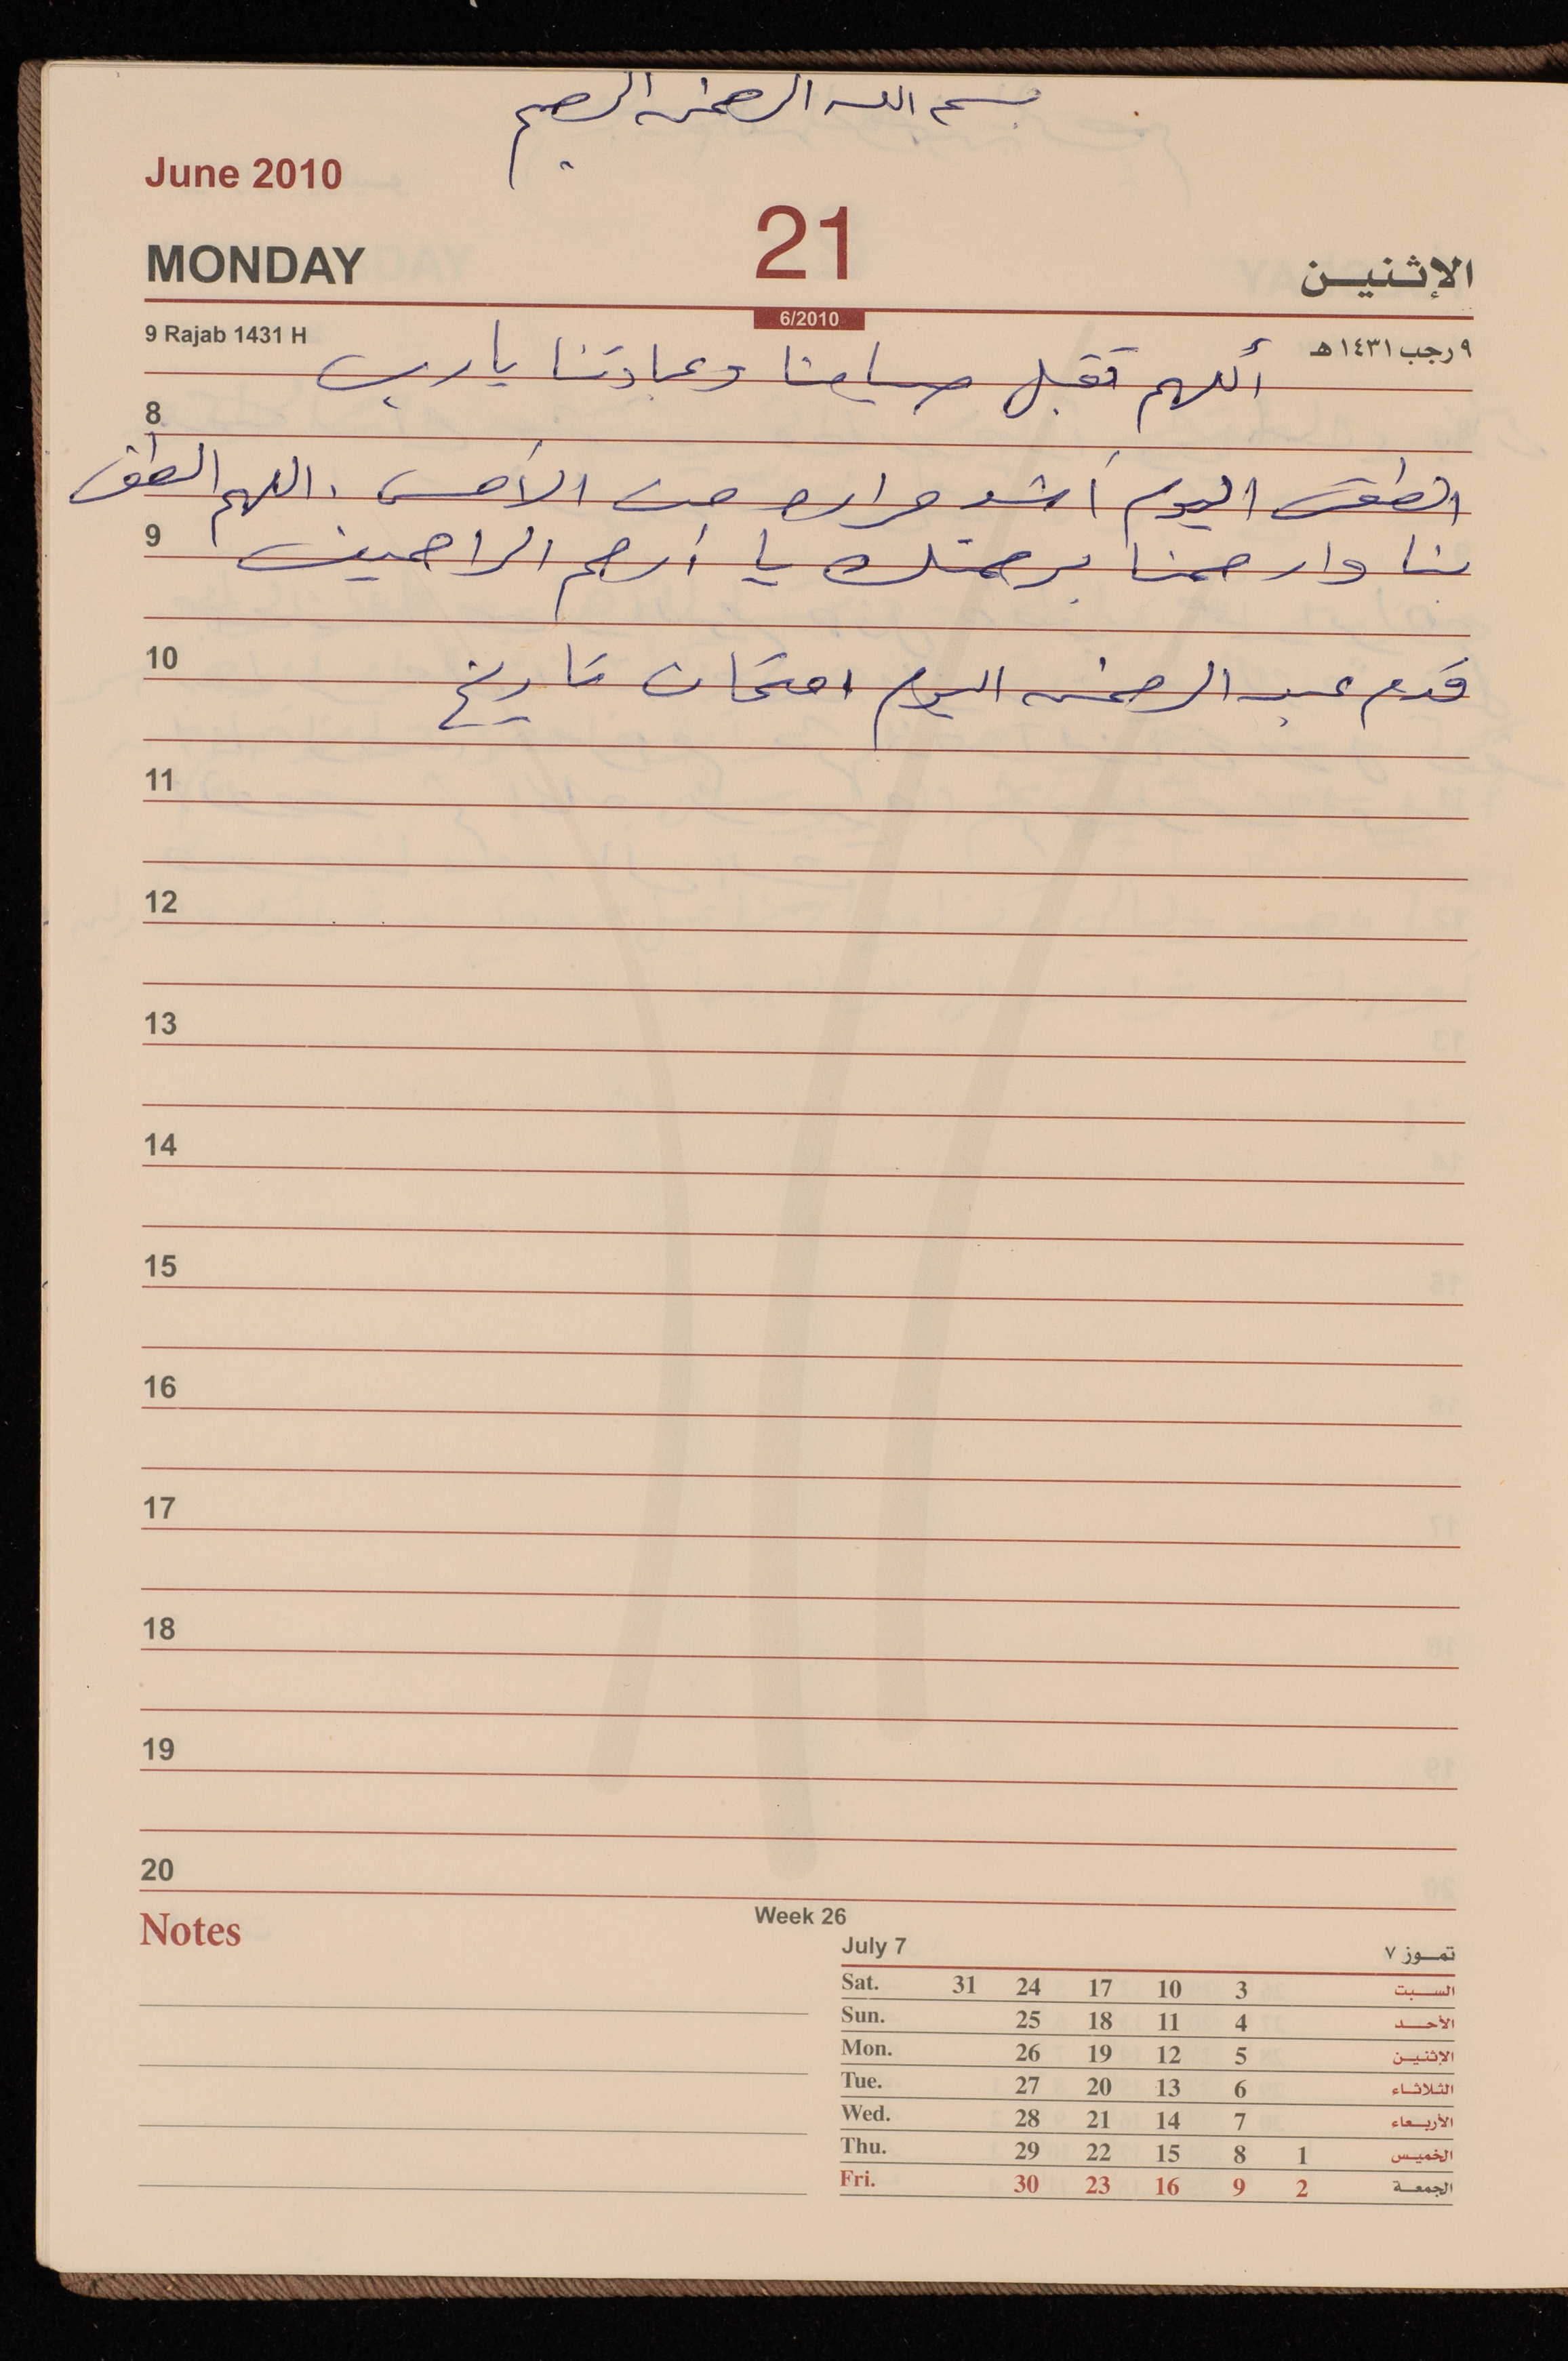 بسم الله الرحمن الرحيم
June 2010
21
MONDAY
الإثنين
6/2010
9 Rajab 1431 H
٩ رجب ١٤٣١ هـ
أللهم تقبل صيامنا وعبادتنا يارب
8
الطقس اليوم أشد حراره من الأمس . اللهم الطف
9
بنا وارحمنا برحمتك يا أرحم الراحمين
10
قدم عبد الرحمن اليوم امتحان تاريخ
11
12
13
14
15
16
17
18
19
20
Notes
Week 26
July 7 تموز ٧
Sat. 31 24 17 10 3 السبت
Sun. 25 18 11 4 الأحد
Mon. 26 19 12 5 الإثنين
Tue. 27 20 13 6 الثلاثاء
Wed. 28 21 14 7 الأربعاء
Thu. 29 22 15 8 1 الخميس
Fri. 30 23 16 9 2 الجمعة